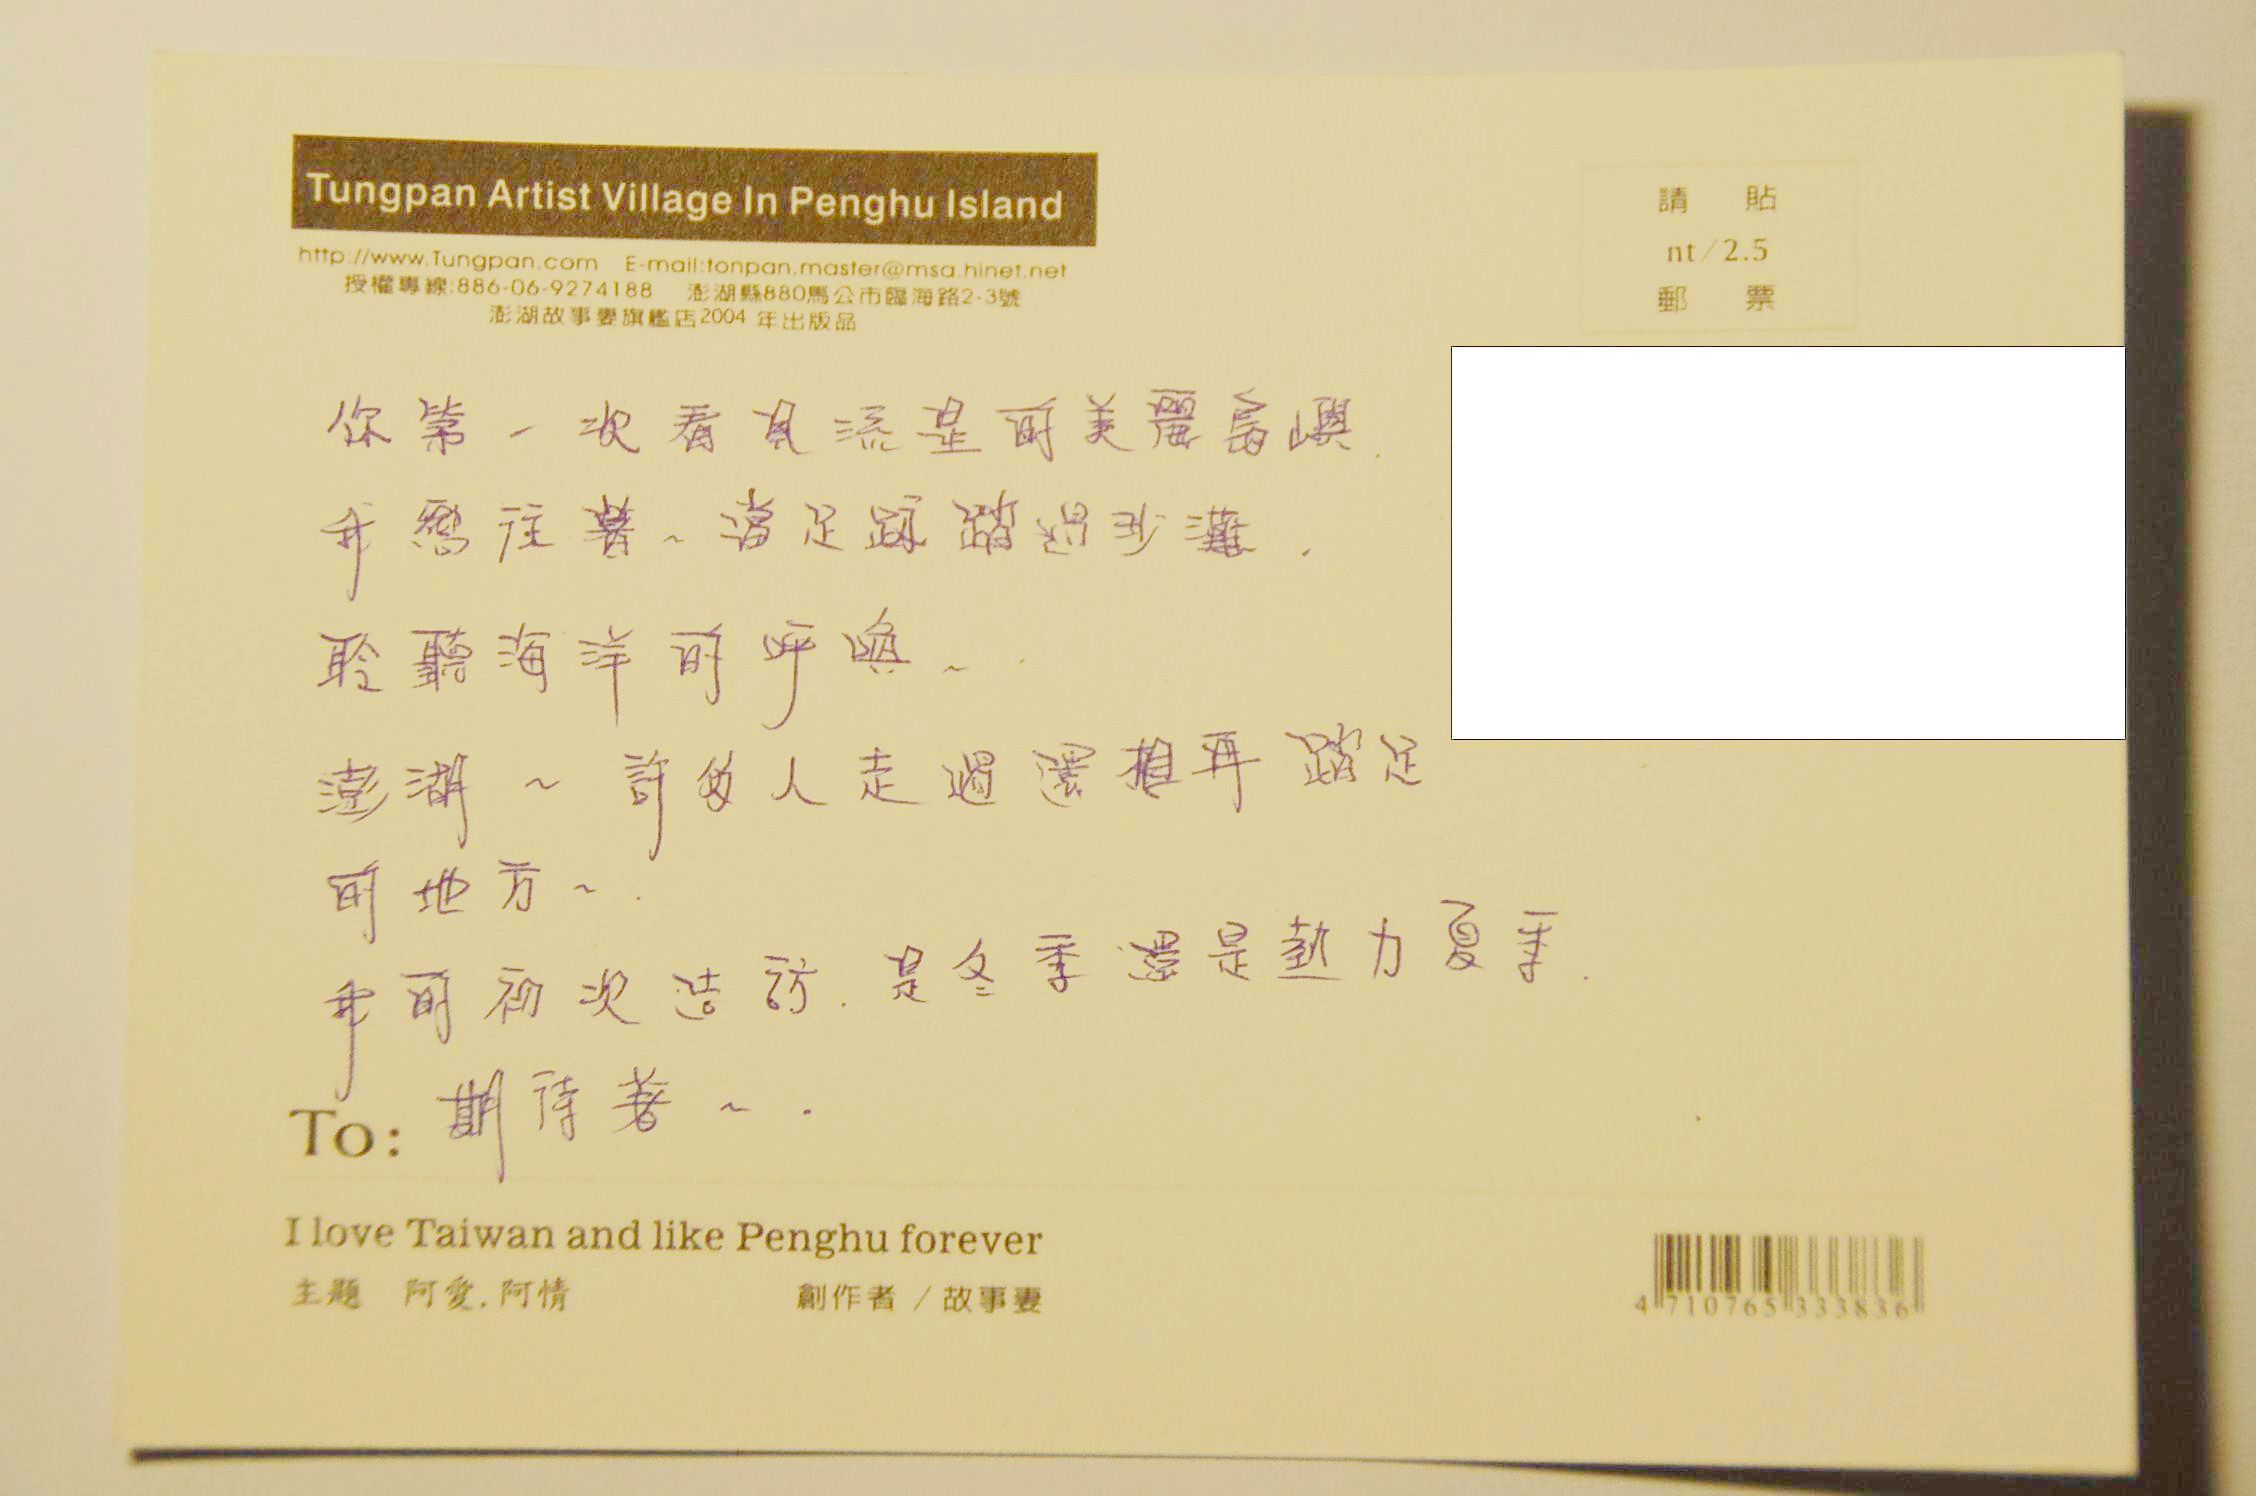 Tungpan Artist Village In Penghu Island
http://www.Tungpan.com E-mail:tonpan.master@msa.hinet.net
授權專線:886-06-9274188 澎湖縣880馬公市臨海路2-3號
澎湖故事妻旗艦店2004 年出版品
請 貼
nt/2.5
郵 票
你第一次看見流是的美麗島嶼.
我嚮往著~當足跡踏過沙灘.
聆聽海洋的呼喚~.
澎湖~許多人走過還想再踏足
的地方~.
我的初次造訪.是冬季還是熱力夏季.
期待著~.
To:
I love Taiwan and like Penghu forever
主題 阿愛.阿情 創作者/故事妻
4 710765 333836